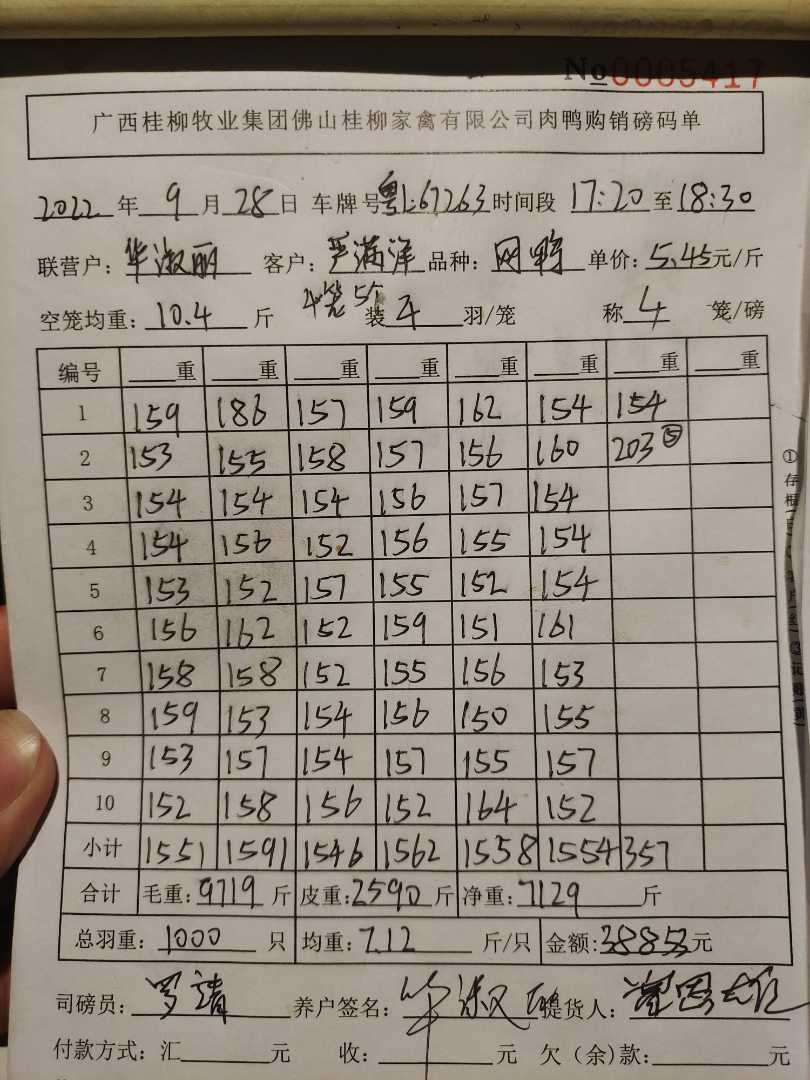 No0005417
广西桂柳牧业集团佛山桂柳家禽有限公司肉鸭购销磅码单
2022年9月28日 车牌号粤L:67263时间段17:20至18:30
联营户:华淑丽 客户:严满洋 品种:网鸭 单价:5.45元/斤
空笼均重:10.4斤 4笼5 装4羽/笼 称4笼/磅
编号 重 重 重 重 重 重 重 重
1 159 186 157 159 162 154 154
2 153 155 158 157 156 160 203⑤
3 154 154 154 156 157 154
4 154 156 152 156 155 154
5 153 152 157 155 152 154
6 156 162 152 159 151 161
7 158 158 152 155 156 153
8 159 153 154 156 150 155
9 153 157 154 157 155 157
10 152 158 156 152 164 152
小计 1551 1591 1546 1562 1558 1554 357
合计 毛重:9719斤 皮重:2590斤 净重:7129斤
总羽重:1000只 均重:7.12斤/只 金额:38853元
司磅员:罗靖 养户签名:华淑丽 提货人:
付款方式:汇 元 收: 元 欠(余)款: 元